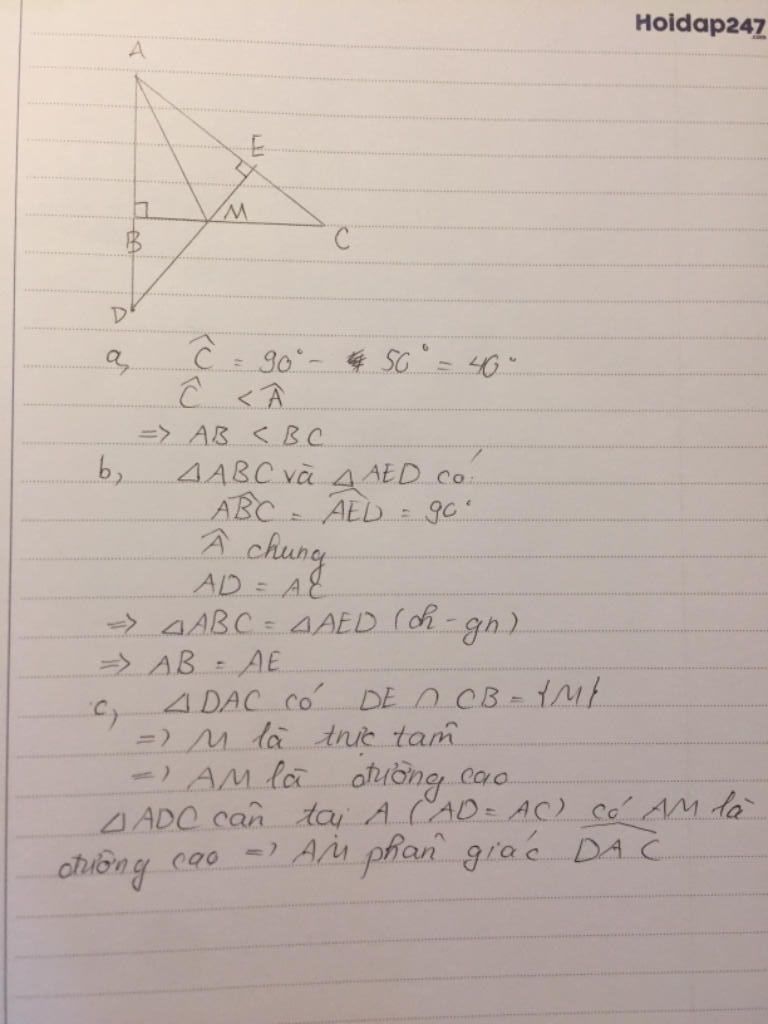 Hoidap247
.com
A
E
M
B
C
D
a, Ĉ = 90° - 50° = 40°
Ĉ < Â
=> AB < BC
b, △ABC và △AED có:
\widehat{ABC} = \widehat{AED} = 90°
Â chung
AD = AC
=> △ABC = △AED (ch - gn)
=> AB = AE
c, △DAC có DE ∩ CB = {M}
=> M là trực tâm
=> AM là đường cao
△ADC cân tại A (AD = AC) có AM là
đường cao => AM phân giác \widehat{DAC}